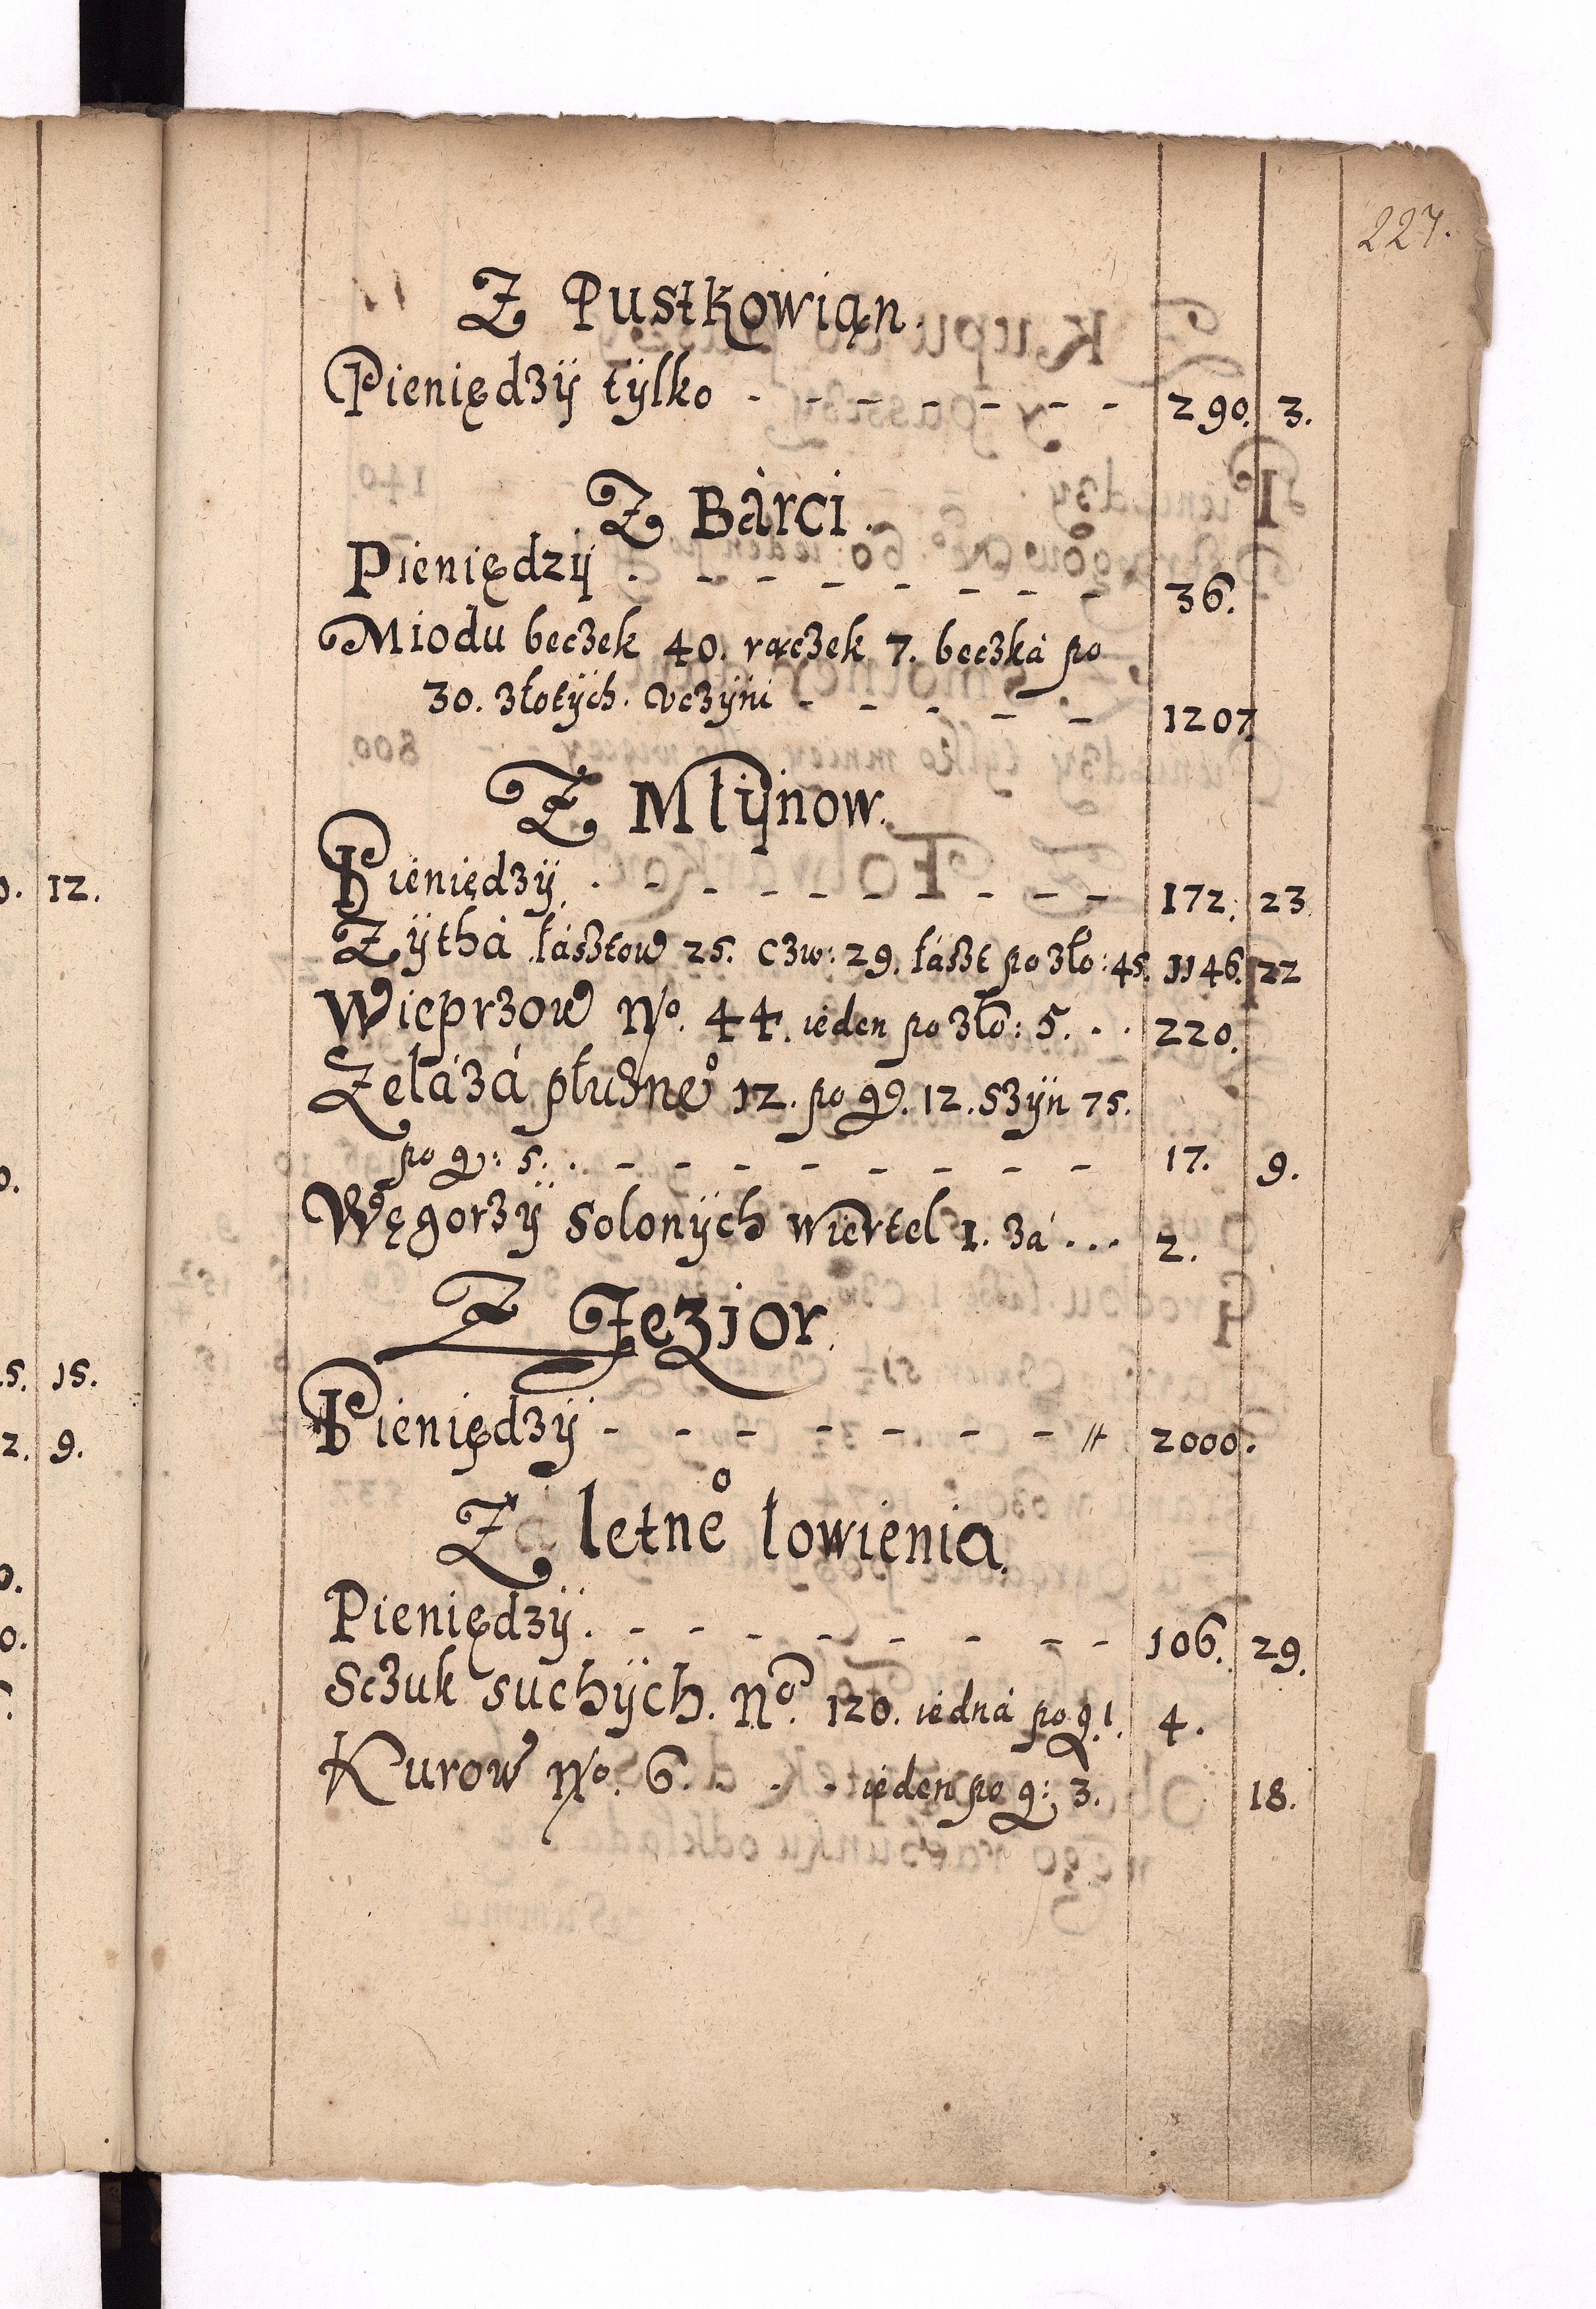 227.
Z Pustkowiąn.
Pieniędzÿ tÿlko - - - - - - - 290. 3.
Z Bàrci.
Pieniędzÿ . - - - - - - - 36.
Miodu beczek 40. rączek 7. beczká po
30. złotÿch. vczÿni - - - - - 1207.
Z Młÿnow.
Pieniędzÿ . - - - - - - - - 172. 23.
Zÿthá łásztow 25. Czw: 29. łászt po zło: 45. 1146. 22
Wieprzow No. 44. ieden po zło: 5. . . 220.
Zelázá płużne° 12. po g. 12. Szÿn 75.
po g: 5. . - - - - - - - - 17. 9.
Węgorzÿ Solonÿch wiertel 1. zá . . . 2.
Z Jezior.
Pieniędzÿ - - - - - - - 2000.
Z letne° łowienia.
Pieniędzÿ. - - - - - - - - 106. 29.
Sczuk suchÿch. No. 120. iedná po g. 1. 4.
Kurow No. 6. - - - ieden po g: 3. 18.
0. 12.
0.
5. 15.
2. 9.
0.
0.